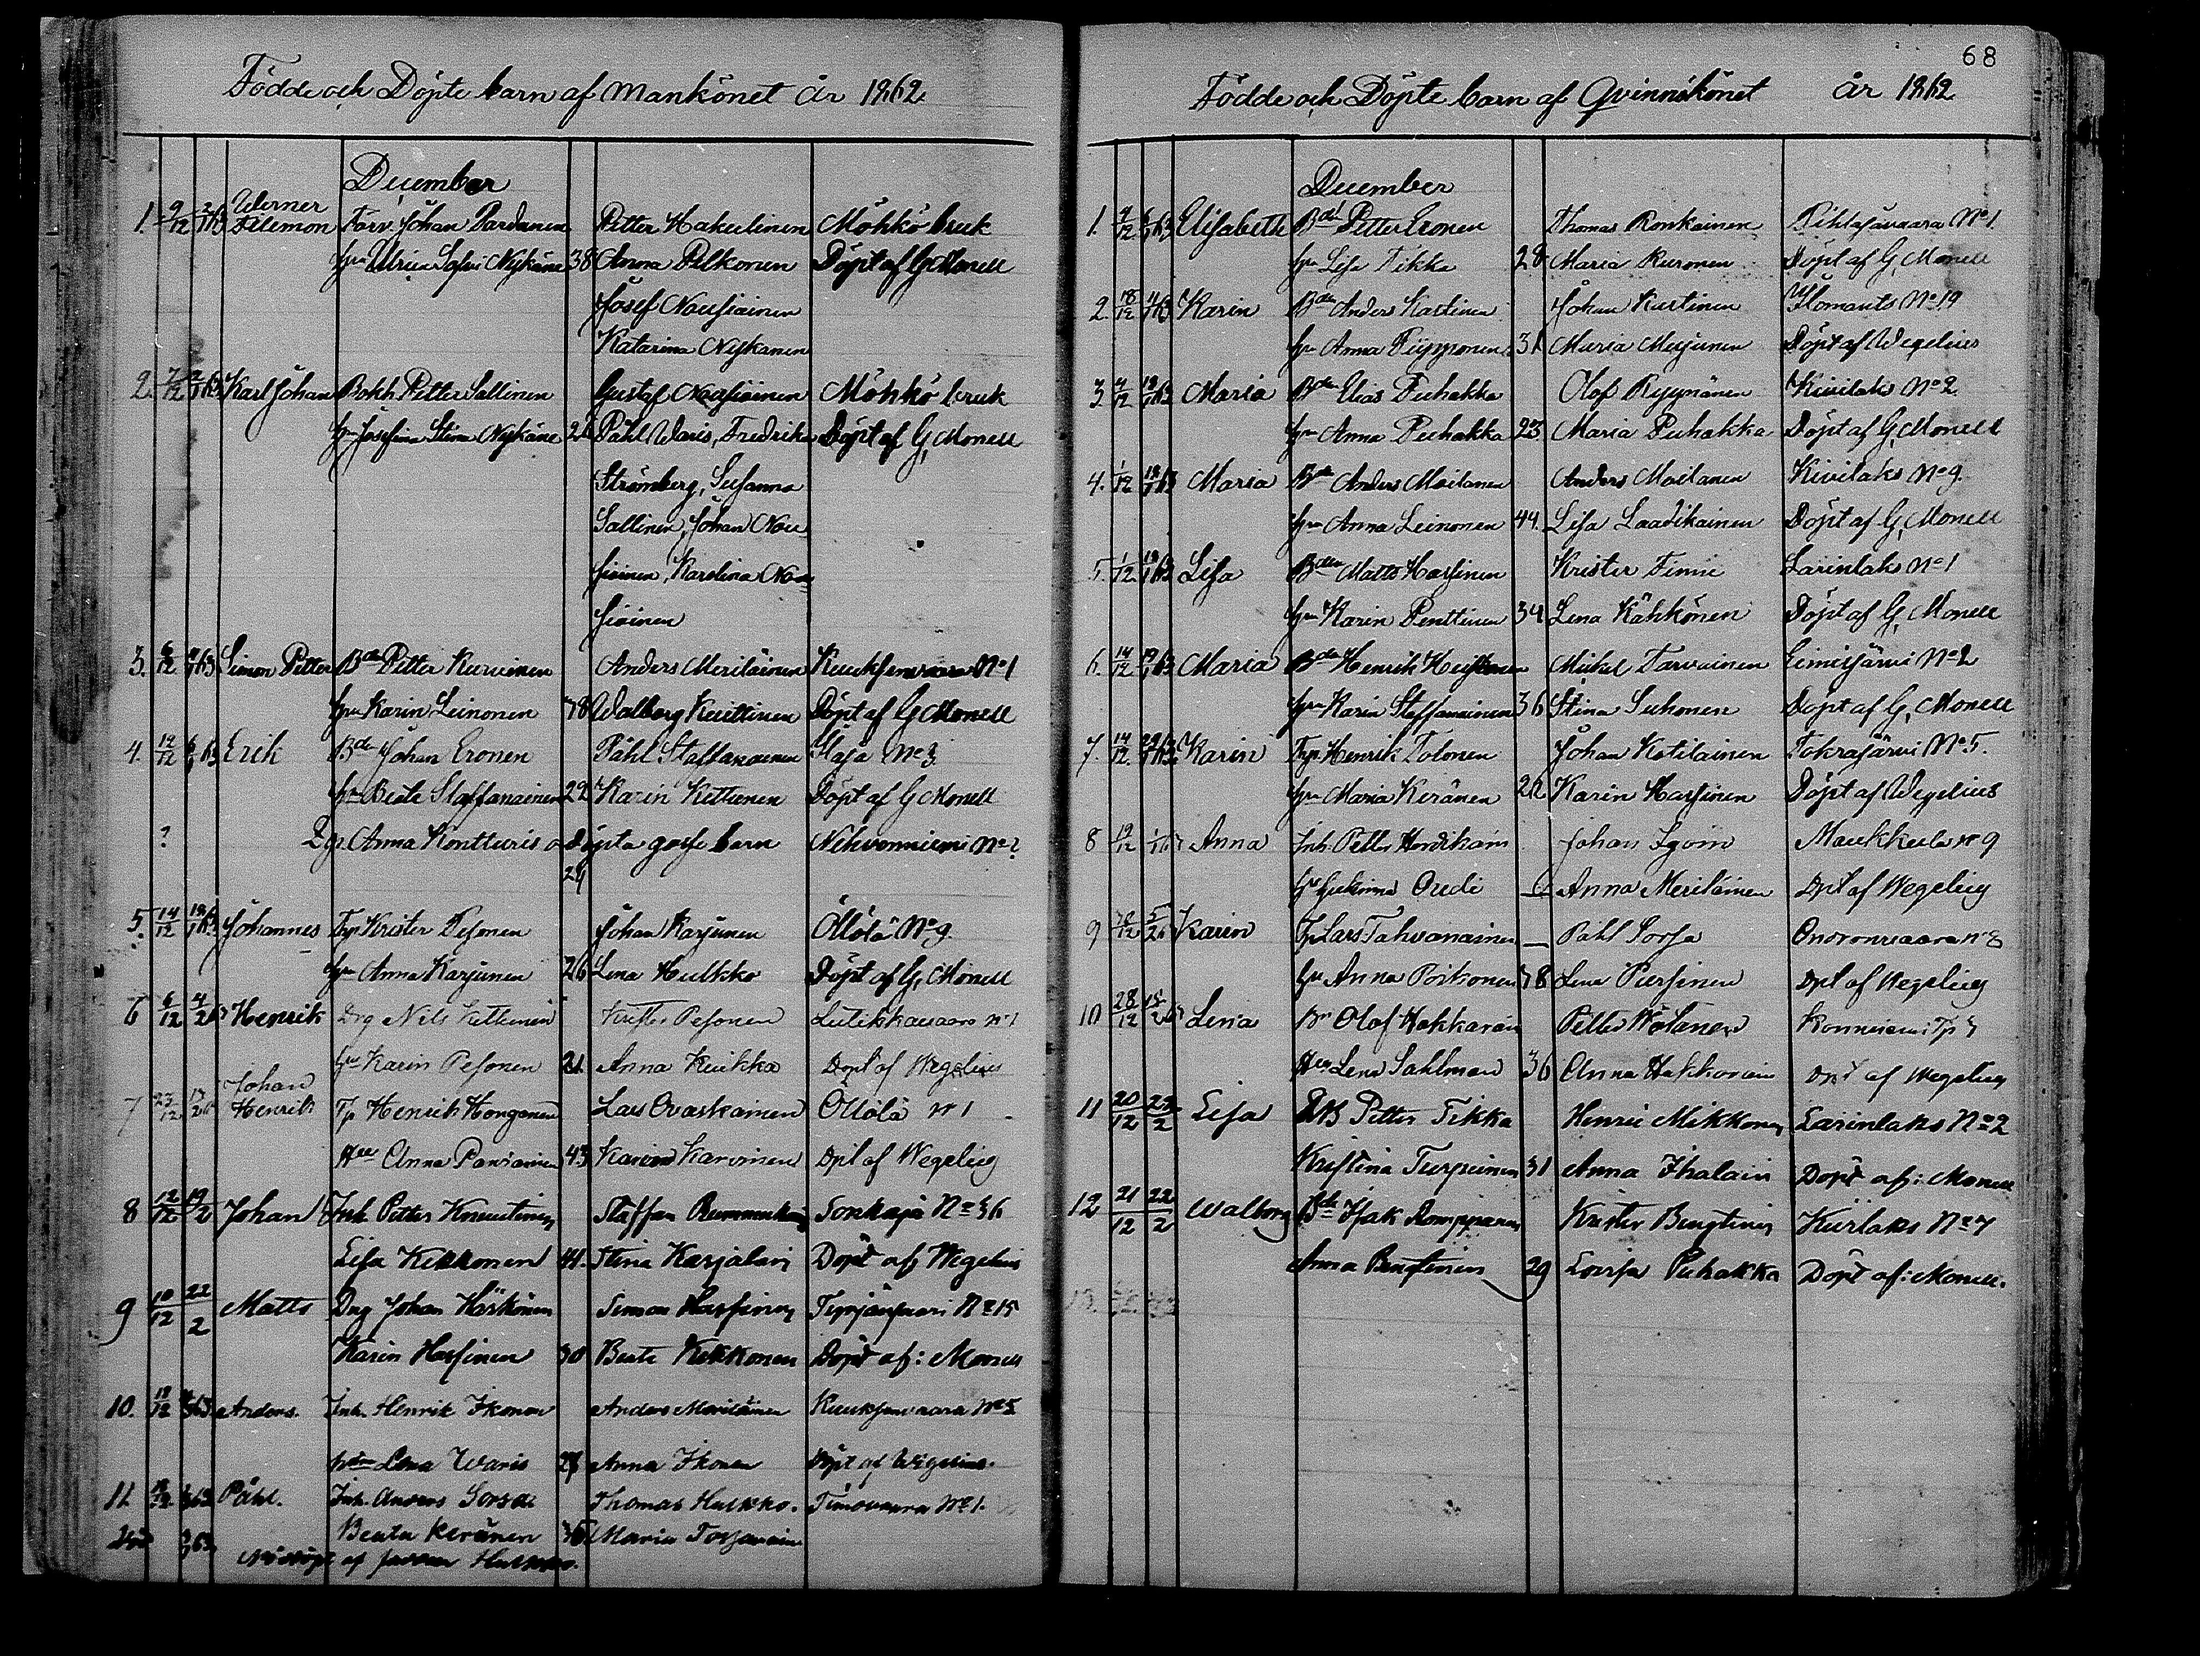 Födde och Döpte barn af Mankönet År 1862
December
1. 9/12 2/1 63 Werner Filemon Förv. Johan Pardanen Petter Hakulinen Möhkö bruk
hu Ulrica Sofia Nykäne 38 Anna Pelkonen Döpt af G, Monell
Josef Nousiainen
Katarina Nykanen
2. 7/12 2/1 63 Karl Johan Bokh. Petter Sallinen Gustaf Nousiainen Möhkö bruk
hu Josefina Stina Nykäne 26 Påhl Waris, Fredrika Döpt af G, Monell
Strömberg, Susanna
Sallinen, Johan Nou
siainen, Karolina Nou
siainen
3. 6/12 63 Simon Petter Bdn Petter Kurvinen Anders Meriläinen Kuuksenvaara No 1
hu Karin Leinonen 38 Walborg Kuittinen Döpt af G Monell
4. 12/12 6/1 63 Erik Bdn Johan Eronen Påhl Staffanainen Ilaja No 3
hu Beata Staffanainen 22 Karin Kettunen Döpt af G Monell
? 2 gr Anna Kontturis odöpta gosse barn Nehvonniemi No ?
24
5. 14/12 18/1 63 Johannes Trp Krister Pesonen Johan Karjunen Öllölä No 9
hu Anna Karjunen 26 Lena Hulkko Döpt af G, Monell
6 6/12 4/2 Henrik Drg Nils Kettunen Krister Pesonen Lutikkavaara No 1
hu Karin Pesonen 21 Anna Kuikka Döpt af Wegelius
7 23/12 Johan Henrik Tp Henrik Honganen Lars Ovaskainen Öllölä No 1
Hu Anna Pansarinen 43 Karin Karvinen Dpt af Wegelius
8 12/12 19/2 Johan Inh. Petter Knuutinen Staffan Rummukain Sonkaja No 36
Lisa Kekkonen 41. Stina Karjalain Döpt af Wegelius
9 10/12 22/2 Matts Drg Johan Härkönen Simon Hassinen No 15
Karin Hassinen 30 Beata Kekkonen Döpt af: Monell
10. 18/12 63 Anders. Inh. Henrik Ikonen Anders Meriläinen Kuuksenvaara No 5
hu Lena Waris 28 Anna Ikonen Döpt af Wegelius.
11 63 Påhl. Inh. Anders Sorsa Thomas Hulkko. Timovaara No 1.
Beata Keränen 36 Maria
Nöddöpt af Hulkko.
68
Födde och Döpte barn af Qvinnskönet år 1862
December
1. 4/12 6/1 63 Elisabeth Bdn Petter Eronen Thomas Ronkainen Pihlajavaara No 1.
hu Lisa Tikka 28 Maria Kuronen Döpt af G, Monell
2. 18/12 11/1 63 Karin Bdn Anders Kastinen Johan Kastinen Ilomants No 19
hu Anna Piipponen 31 Maria Meijunen Döpt af Wegelius
3 4/12 18/1 63 Maria Bdn Elias Puhakka Olof Ryynänen Kivilaks No 2
hu Anna Puhakka 23 Maria Puhakka Döpt af G, Monell
4. 1/12 18/1 63 Maria Bdn Anders Moilanen Anders Moilanen Kivilaks No 9.
hu Anna Leinonen 44. Lisa Laadikainen Döpt af G, Monell
5. 1/12 18/1 63 Lisa Bdn Matts Hassinen Krister Timie Larinlaks No 1
hu Karin Penttinen 34 Lena Kähkönen Döpt af G, Monell
6. 14/12 19/1 63 Maria Bdn Henrik Heiskanen Mikel Tarvainen Eimisjärvi No 2
hu Karin Staffanainen 36 Stina Suhonen Döpt af G, Monell
7. 14/12 63 Karin Trp Henrik Tolonen Johan Kotilainen Tokrajärvi No 5.
hu Maria Keränen 26 Karin Hassinen Döpt af Wegelius
8 19/12 Anna Inh. Petter Hordikain Johan Igoin Maukkula No 9
Oredi Anna Meriläinen Dpt af Wegelius
9 5/2 Karin Tp Lars Tahvanainen Påhl Sorsa Ontronvaara No 8
hu Anna Poikonen 38 Lena Piirsinen Dpt af Wegelius
10 28/12 15/2 Lena Bn Olof Hakkarain Petter Wätänen Konnunniemi Tp 5
Hu Lena Sahlman 36 Anna Hakkarain Dpt af Wegelius
11 20/12 22/2 Lisa Petter Tikka Henric Mikkonen Larinlaks No 2
Kristina Turpeinen 31 Anna Ihalain Döpt af: Monell
12 21/12 22/2 Walborg Bdn Isak Romppanen Krister Bengtinen Kivilaks No 7
Anna Bengtinen 29 Lovisa Puhakka Döpt af: Monell.